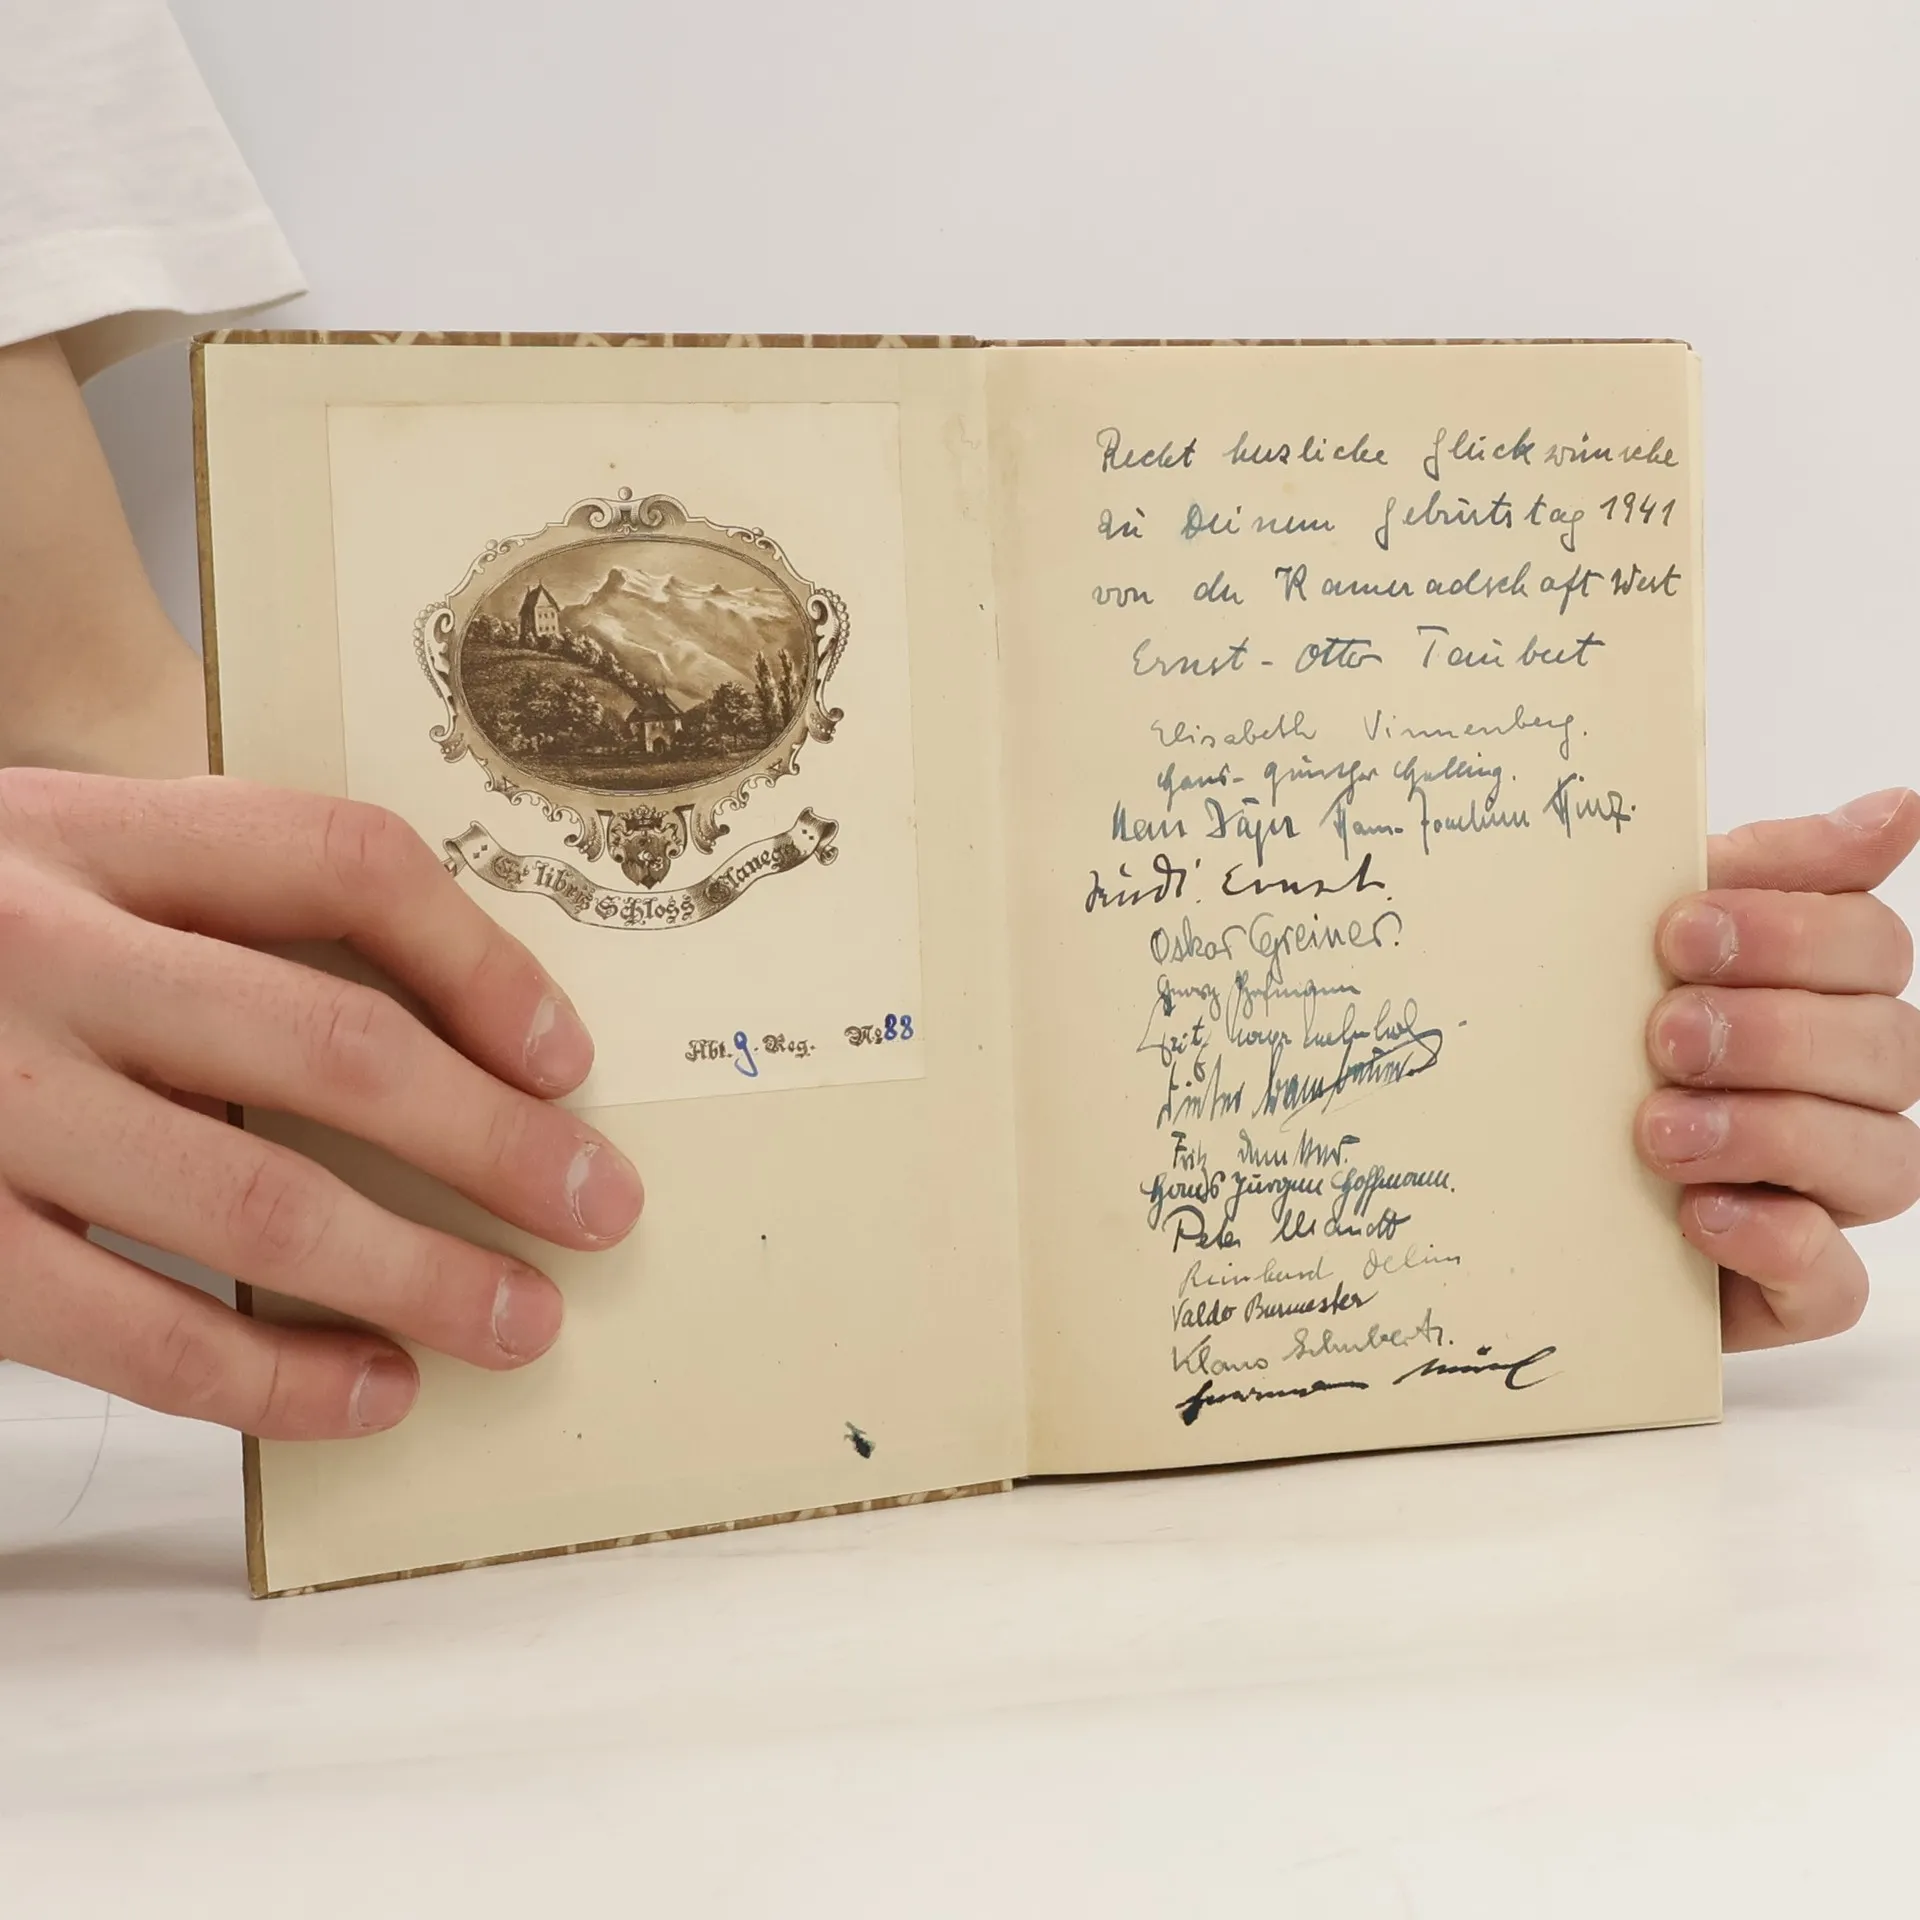 Ex libris Schloss Glanegg
Abt. 9. Reg. No 88
Recht herzliche Glückwünsche
zu Deinem Geburtstag 1941
von der Kameradschaft West
Ernst-Otto Taubert
Elisabeth Vinnenberg.
Hans-Günther Helling.
Jäger Hans-Joachim Hinz.
Rudi Ernst.
Oskar Greiner.
Georg Hofmann
Fritz
Dieter
Fritz
Hans Jürgen Hoffmann.
Peter Mandt
Reinhard
Valdo Burmester
Klaus Schubert.